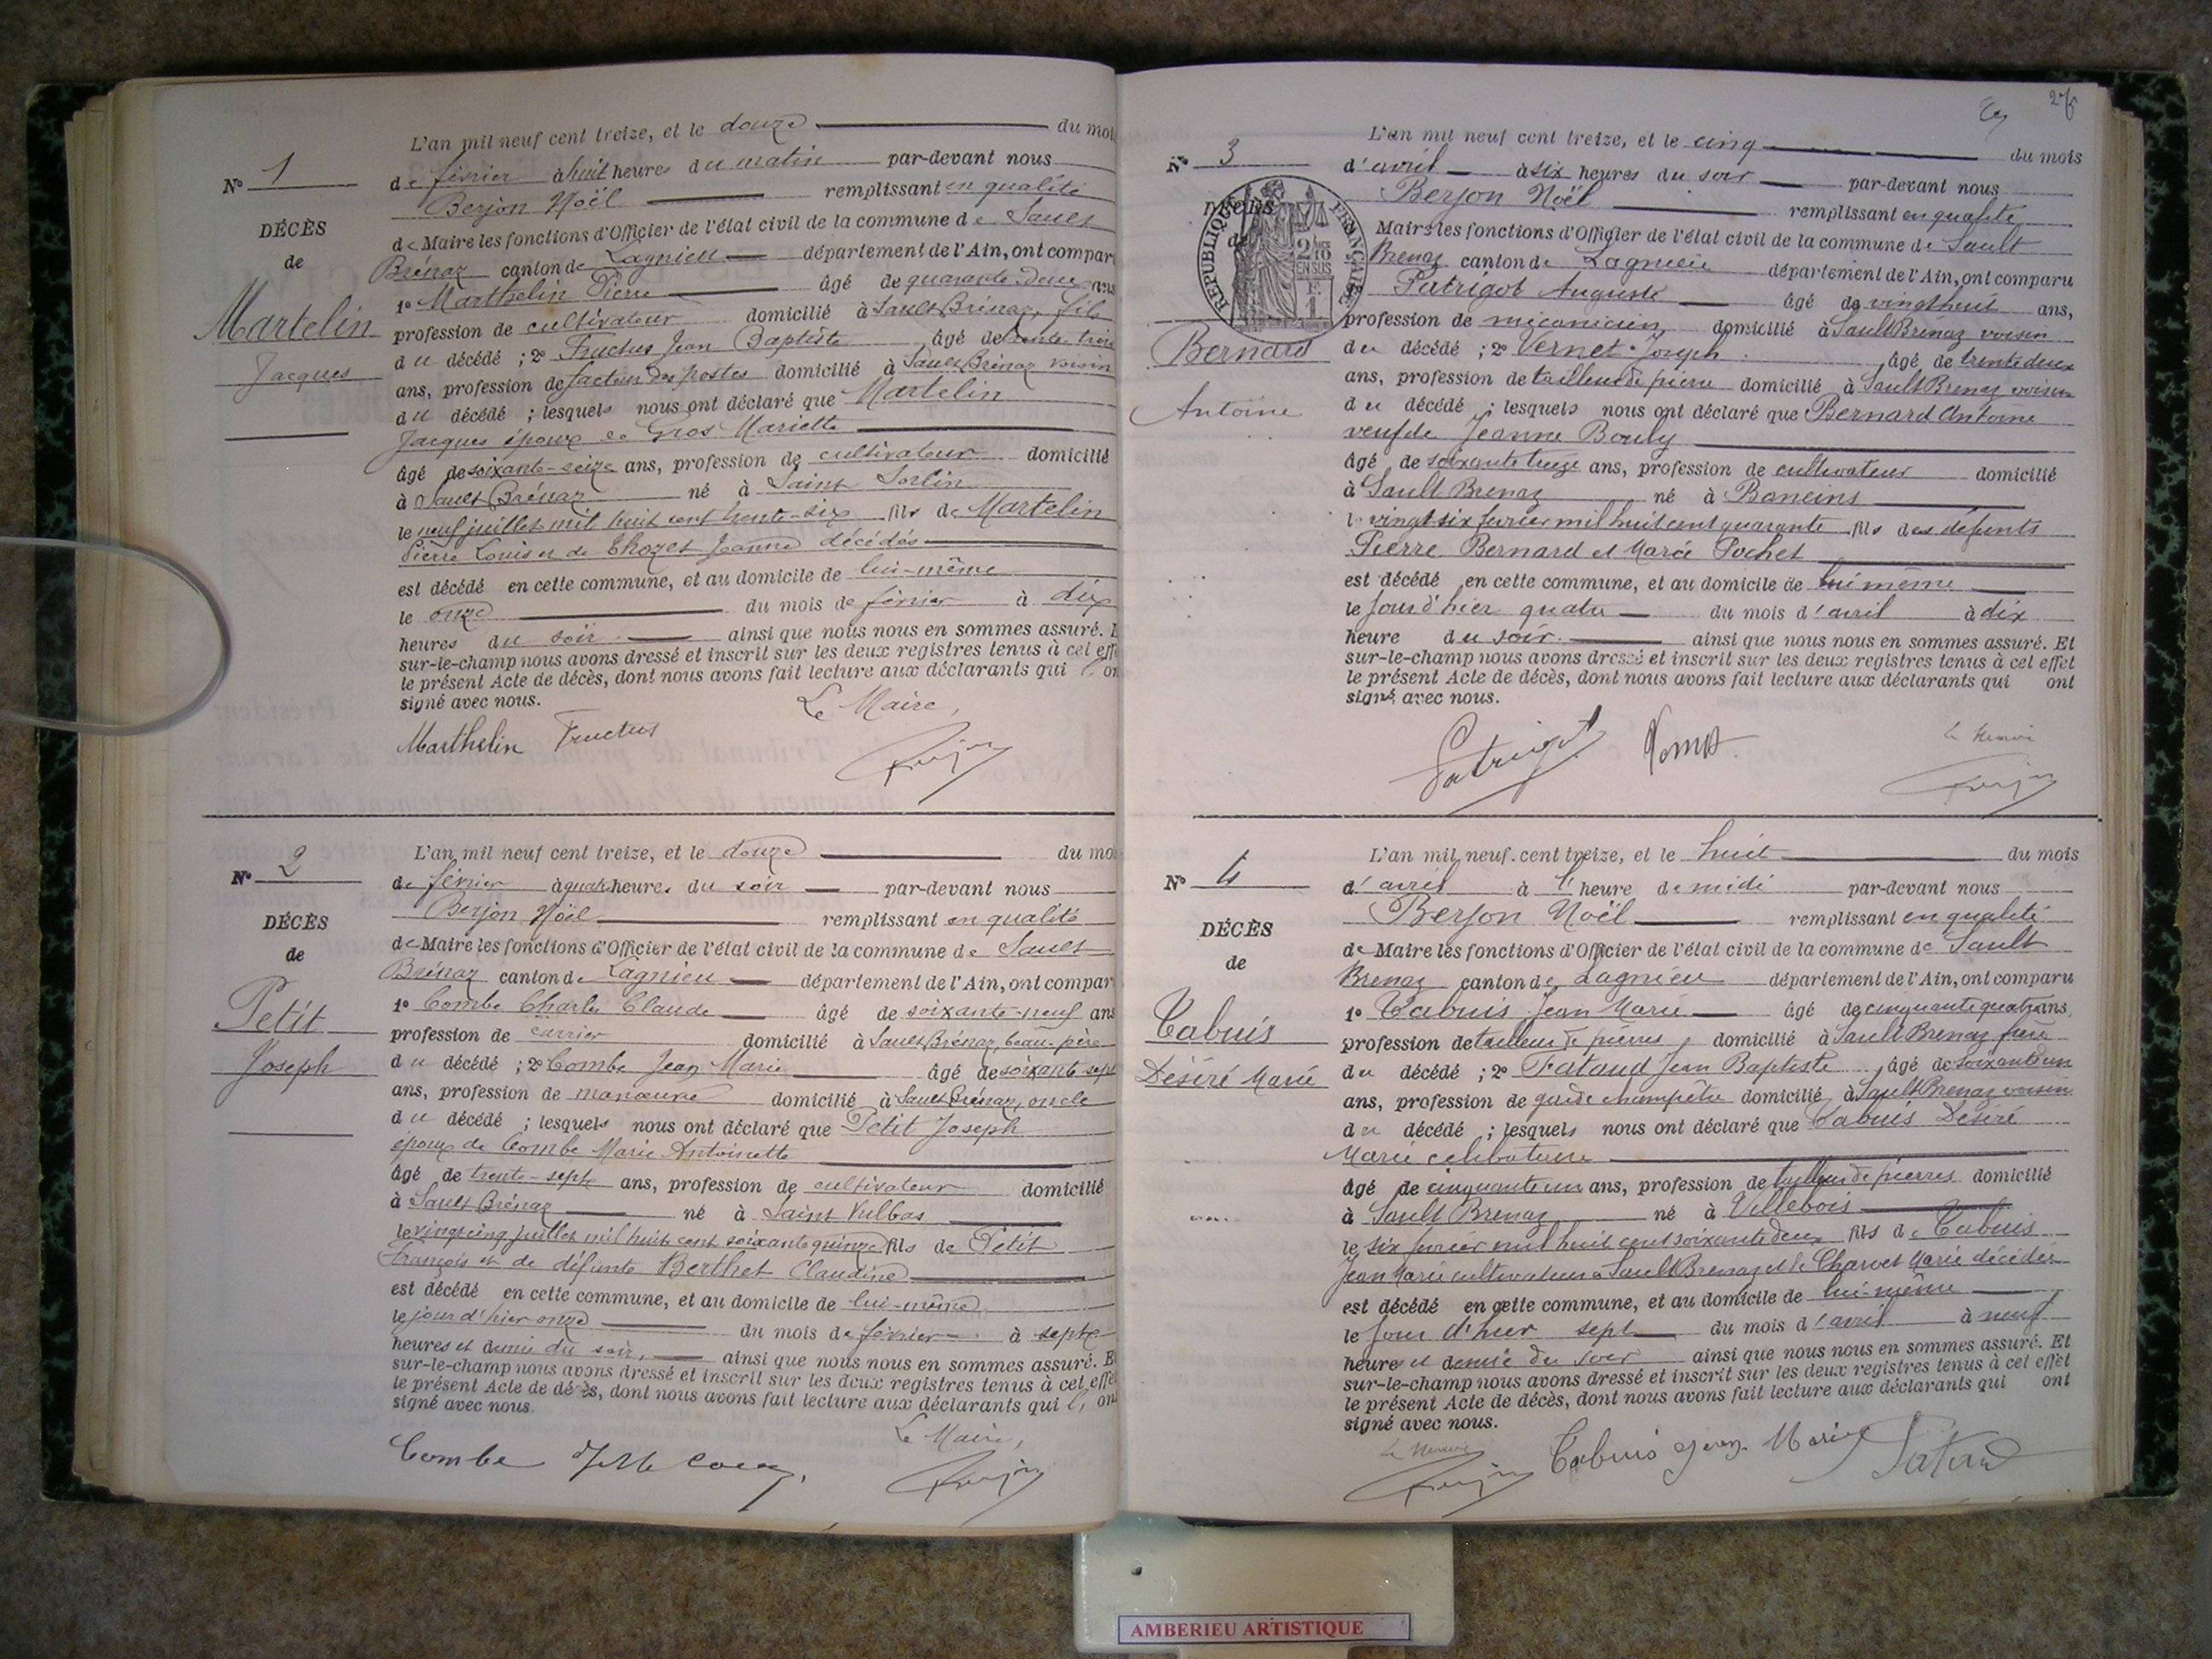 N° 1
DÉCÈS
de
Martelin
Jacques
L'an mil neuf cent treize, et le douze du mois
de février à huit heures du matin par-devant nous
Berjon Noël remplissant en qualité
de Maire les fonctions d'Officier de l'état civil de la commune de Sault
Brénaz canton de Lagnieu département de l'Ain, ont compar
1° Marthelin Pierre âgé de quarante-deux ans
profession de cultivateur domicilié à Sault Brénaz, fils
du décédé ; 2° Fructus Jean Baptiste âgé de trente trois
ans, profession de facteur des postes domicilié à Sault Brénaz voisin
du décédé ; lesquels nous ont déclaré que Martelin
Jacques époux de Gros Mariette
âgé de soixante-seize ans, profession de cultivateur domicilié
à Sault Brénaz né à Saint Sorlin
le neuf juillet mil huit cent trente-six fils de Martelin
Pierre Louis et de Thozet Jeanne décédés
est décédé en cette commune, et au domicile de lui-même
le onze du mois de février à dix
heures du soir ainsi que nous nous en sommes assuré. E
sur-le-champ nous avons dressé et inscrit sur les deux registres tenus à cet effe
le présent Acte de décès, dont nous avons fait lecture aux déclarants qui on
signé avec nous.
Le Maire,
Marthelin Fructus
N° 2
DÉCÈS
de
Petit
Joseph
L'an mil neuf cent treize, et le douze du mo
de février à quatre heures du soir par-devant nous
Berjon Noël remplissant en qualité
de Maire les fonctions d'Officier de l'état civil de la commune de Sault
Brénaz canton de Lagnieu département de l'Ain, ont compar
1° Combe Charles Claude âgé de soixante-neuf ans
profession de carrier domicilié à Sault Brénaz, beau-père
du décédé ; 2° Combe Jean Marie âgé de soixante sept
ans, profession de manœuvre domicilié à Sault Brénaz, oncle
du décédé ; lesquels nous ont déclaré que Petit Joseph
époux de Combe Marie Antoinette
âgé de trente-sept ans, profession de cultivateur domicilié
à Sault Brénaz né à Saint Vulbas
le vingt cinq juillet mil huit cent soixante quinze fils de Petit
François et de défunte Berthet Claudine
est décédé en cette commune, et au domicile de lui-même
le jour d'hier onze du mois de février à sept
heures et demie du soir, ainsi que nous nous en sommes assuré. E
sur-le-champ nous avons dressé et inscrit sur les deux registres tenus à cet effe
le présent Acte de décès, dont nous avons fait lecture aux déclarants qui on
signé avec nous.
Le Maire,
Combe
N° 3
DÉCÈS
de
RÉPUBLIQUE FRANÇAISE
2/10 EN SUS
Bernard
Antoine
L'an mil neuf cent treize, et le cinq du mois
d'avril à six heures du soir par-devant nous
Berjon Noël remplissant en qualité
Maire les fonctions d'Officier de l'état civil de la commune de Sault
Brenaz canton de Lagnieu département de l'Ain, ont comparu
Patrigot Auguste âgé de vingt huit ans,
profession de mécanicien domicilié à Sault Brénaz voisin
du décédé ; 2° Vernet Joseph âgé de trente deux
ans, profession de tailleur de pierre domicilié à Sault Brenaz voisin
du décédé ; lesquels nous ont déclaré que Bernard Antoine
veuf de Jeanne Bouly
âgé de soixante treize ans, profession de cultivateur domicilié
à Sault Brenaz né à Baneins
le vingt six fevrier mil huit cent quarante fils des défunts
Pierre Bernard et Marie Pochet
est décédé en cette commune, et au domicile de lui même
le jour d'hier quatre du mois d'avril à dix
heure du soir. ainsi que nous nous en sommes assuré. Et
sur-le-champ nous avons dressé et inscrit sur les deux registres tenus à cet effet
le présent Acte de décès, dont nous avons fait lecture aux déclarants qui ont
signé avec nous.
Patrigot
N° 4
DÉCÈS
de
Cabuis
Désiré Marie
L'an mil neuf cent treize, et le huit du mois
d'avril à l'heure de midi par-devant nous
Berjon Noël remplissant en qualité
de Maire les fonctions d'Officier de l'état civil de la commune de Sault
Brenaz canton de Lagnieu département de l'Ain, ont comparu
1° Cabuis Jean Marie âgé de cinquante quatre ans,
profession de tailleur de pierres domicilié à Sault Brenaz frère
du décédé ; 2° Fataud Jean Baptiste âgé de soixante un
ans, profession de garde champêtre domicilié à Sault Brenaz voisin
du décédé ; lesquels nous ont déclaré que Cabuis Désiré
Marie celibataire
âgé de cinquante un ans, profession de tailleur de pierres domicilié
à Sault Brenaz né à Villebois
le six fevrier mil huit cent soixante deux fils de Cabuis
Jean Marie cultivateur à Sault Brenaz et de Charvet Marie décédée
est décédé en cette commune, et au domicile de lui-même
le jour d'hier sept du mois d'avril à neuf
heures et demie du soir ainsi que nous nous en sommes assuré. Et
sur-le-champ nous avons dressé et inscrit sur les deux registres tenus à cet effet
le présent Acte de décès, dont nous avons fait lecture aux déclarants qui ont
signé avec nous.
Cabuis Jean Marie Fataud
AMBERIEU ARTISTIQUE